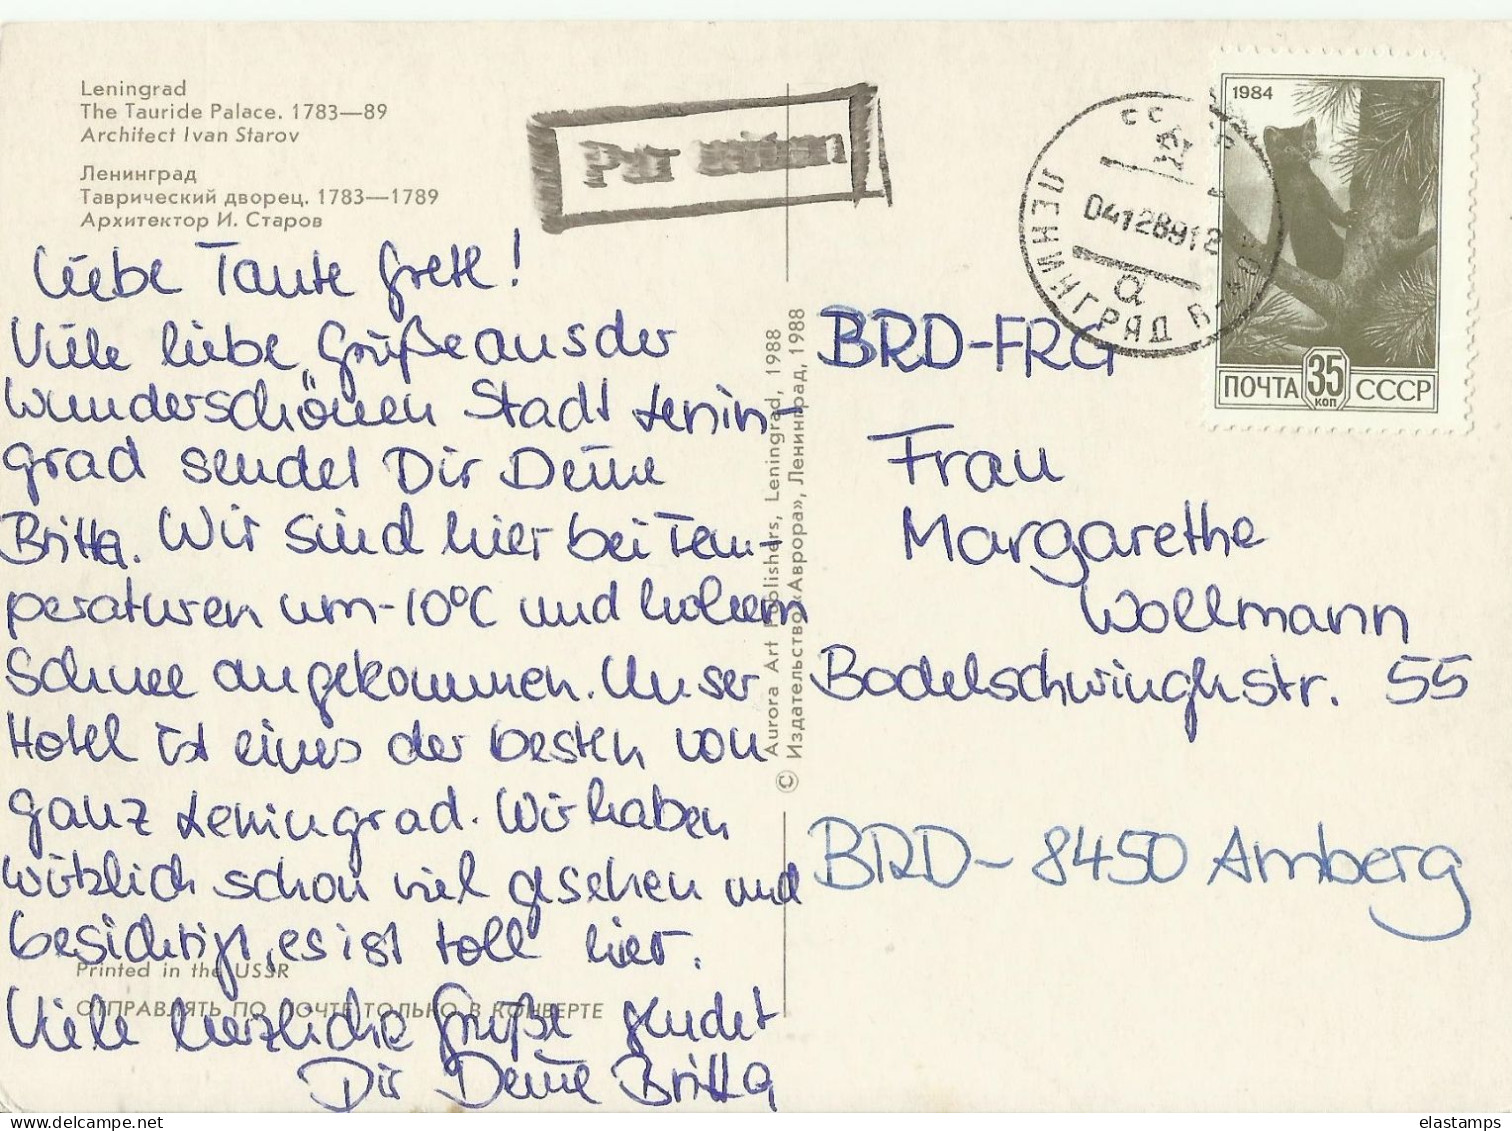 Leningrad
The Tauride Palace. 1783—89
Architect Ivan Starov
Ленинград
Таврический дворец. 1783—1789
Архитектор И. Старов
Liebe Tante Grete!
Viele liebe Grüße aus der
wunderschönen Stadt Lenin-
grad sendet Dir Deine
Britta. Wir sind hier bei Tem-
peraturen um -10°C und hohem
Schnee angekommen. Unser
Hotel ist eines der besten von
ganz Leningrad. Wir haben
wirklich schon viel gesehen und
besichtigt, es ist toll hier.
Printed in the USSR
ОТПРАВЛЯТЬ ПО ПОЧТЕ ТОЛЬКО В КОНВЕРТЕ
Viele herzliche Grüße sendet
Dir Deine Britta
Par avion
© Aurora Art Publishers, Leningrad, 1988
Издательство «Аврора», Ленинград, 1988
СССР
04128912
ЛЕНИНГРАД
а
1984
ПОЧТА 35 КОП СССР
BRD-FRG
Frau
Margarethe
Wollmann
Bodelschwinghstr. 55
BRD-8450 Amberg
elastamps